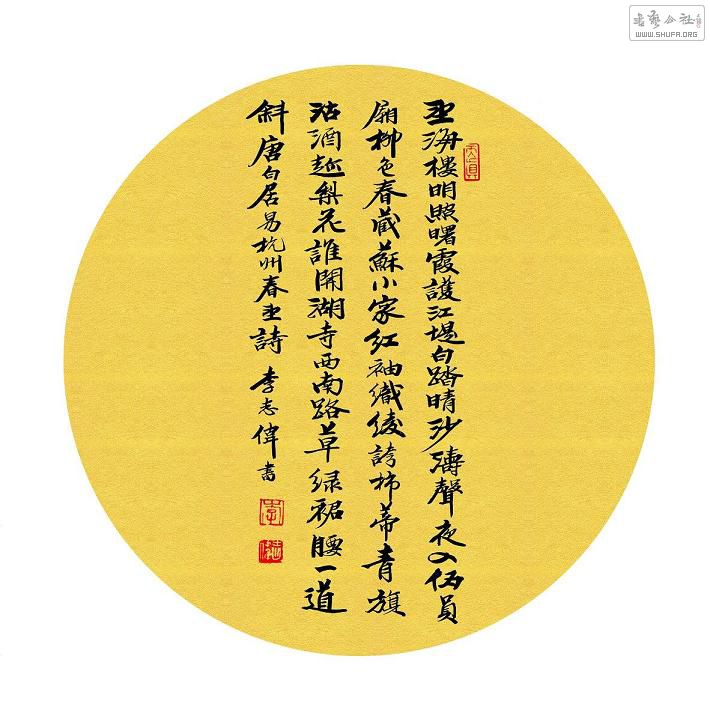 望海樓明照曙霞護江堤白踏晴沙濤聲夜入伍員
廟柳色春藏蘇小家紅袖織綾誇柿蒂青旗
沽酒趁梨花誰開湖寺西南路草綠裙腰一道
斜唐白居易杭州春望詩 李志偉書
書藝公社
WWW.SHUFA.ORG